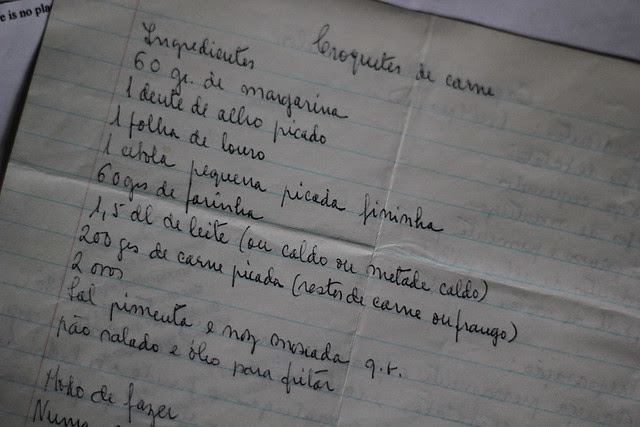 e is no pla
Croquetes de carne
Ingredientes
60 gr. de margarina
1 dente de alho picado
1 folha de louro
1 cebola pequena picada fininha
60 grs de farinha
1,5 dl de leite (ou caldo ou metade caldo)
200 grs de carne picada (restos de carne ou frango)
2 ovos
Sal pimenta e noz moscada q.s.
pão ralado e óleo para fritar
Modo de fazer